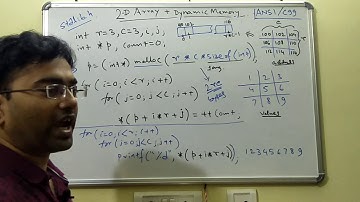 stdlib.h
2-D Array + Dynamic Memory
ANSI/C99
int r=3, C=3, i, j;
int *p, count=0;
p = (int*) malloc (r * c * sizeof(int));
for (i=0; i<r; i++)
for (j=0; j<c; j++)
*(p + i*r + j) = ++count;
for (i=0; i<r; i++)
for (j=0; j<c; j++)
printf("%d", *(p+i*r+j));
100 102 104
106 108 110
112 114 116
address
1 2 3
4 5 6
7 8 9
values
1 2 3 4 5 6 7 8 9